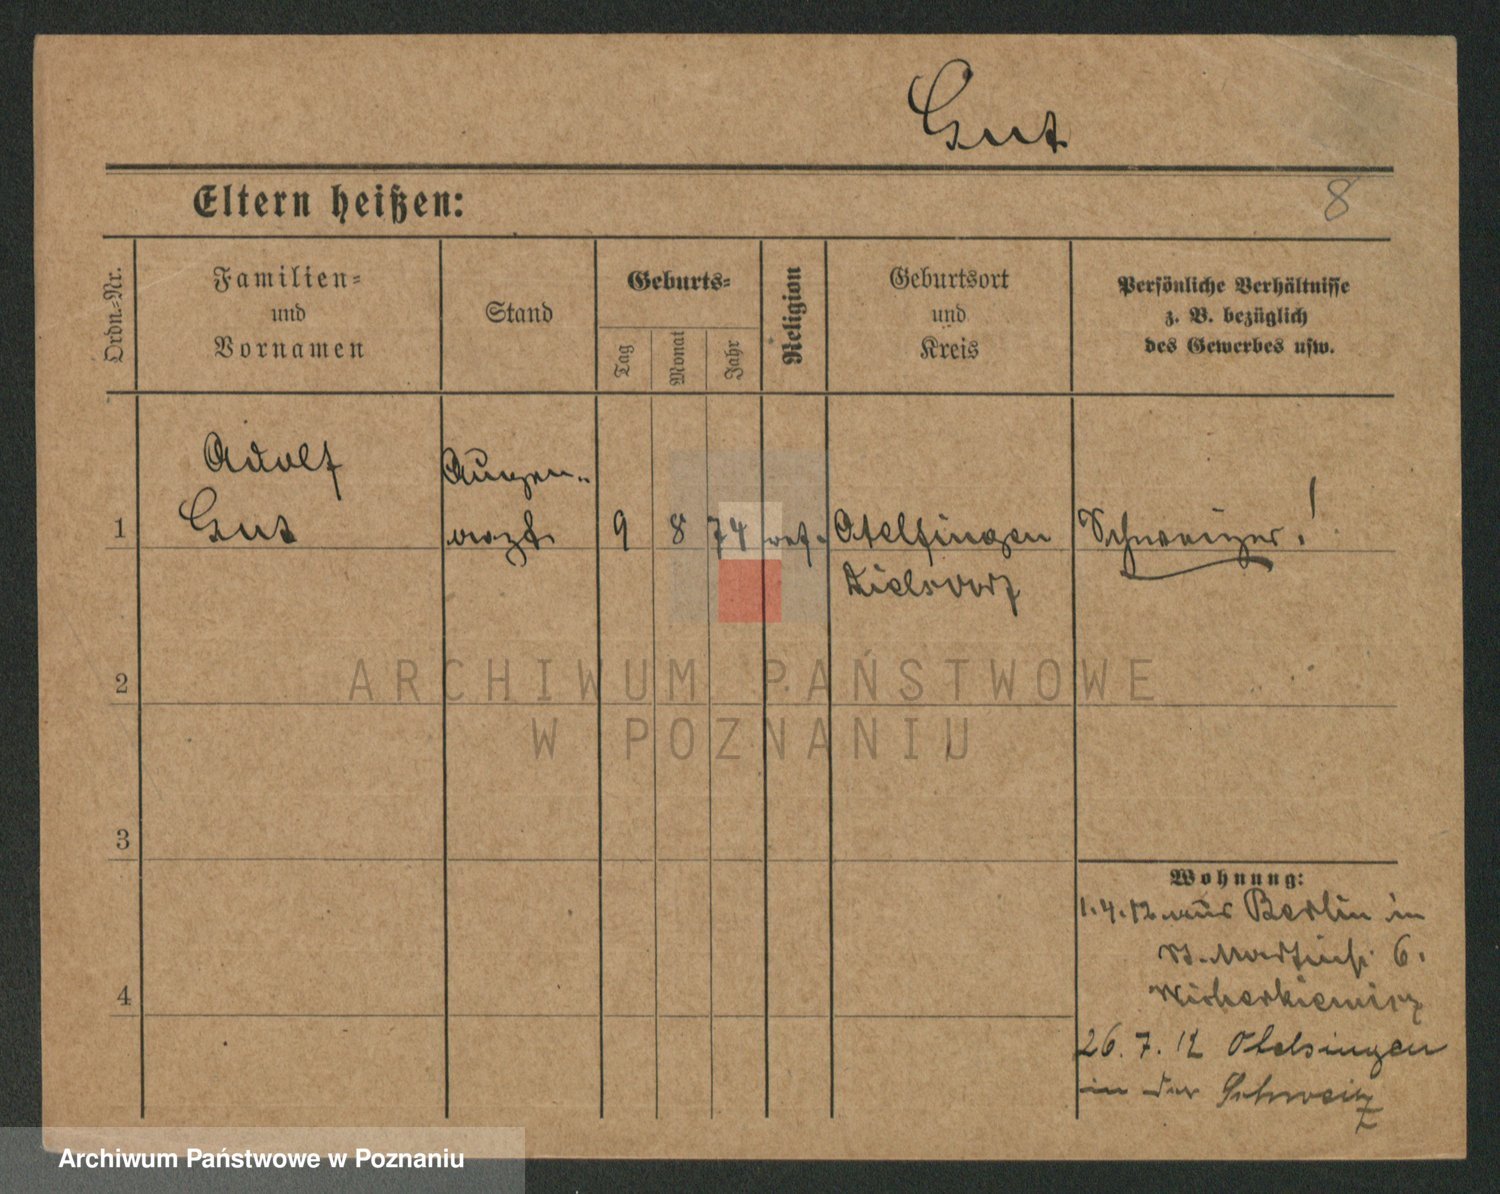 Gut
Eltern heißen:
8
Ordn.-Nr.
Familien-
und
Vornamen
Stand
Geburts-
Tag
Monat
Jahr
Religion
Geburtsort
und
Kreis
Persönliche Verhältnisse
z. B. bezüglich
des Gewerbes usw.
Adolf
Gut
Augen-
arzt.
1
9
8
74
ref.
Otelfingen
Dielsdorf
Schweizer!
ARCHIWUM PAŃSTWOWE
W POZNANIU
2
3
4
Wohnung:
1.4.12 aus Berlin in
St. Martinstr. 6.
Wicherkiewicz
26.7.12 Otelsingen
in der Schweiz
Archiwum Państwowe w Poznaniu